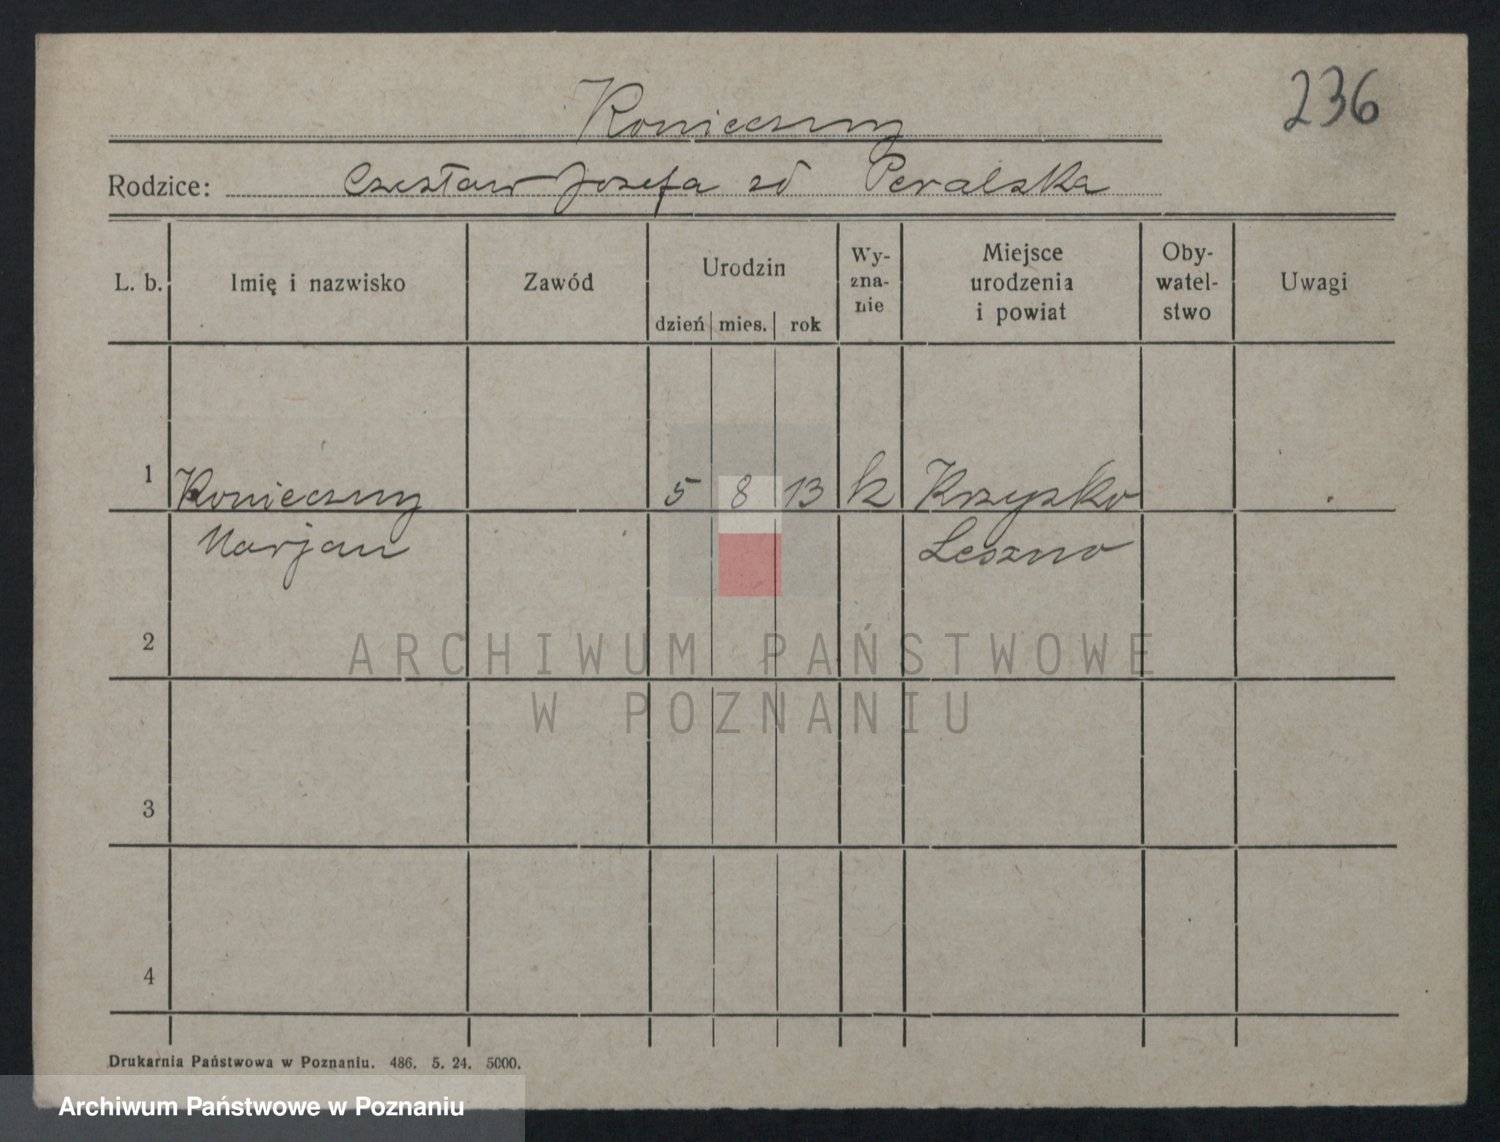 236
Konieczny
Rodzice: Czesław Józefa zd Peralska
L. b. Imię i nazwisko Zawód Urodzin dzień mies. rok Wy-zna-nie Miejsce urodzenia i powiat Oby-watel-stwo Uwagi
1 Konieczny 5 8 13 k Krzyzko
Marjan Leszno
2
3
4
ARCHIWUM PAŃSTWOWE
W POZNANIU
Drukarnia Państwowa w Poznaniu. 486. 5. 24. 5000.
Archiwum Państwowe w Poznaniu